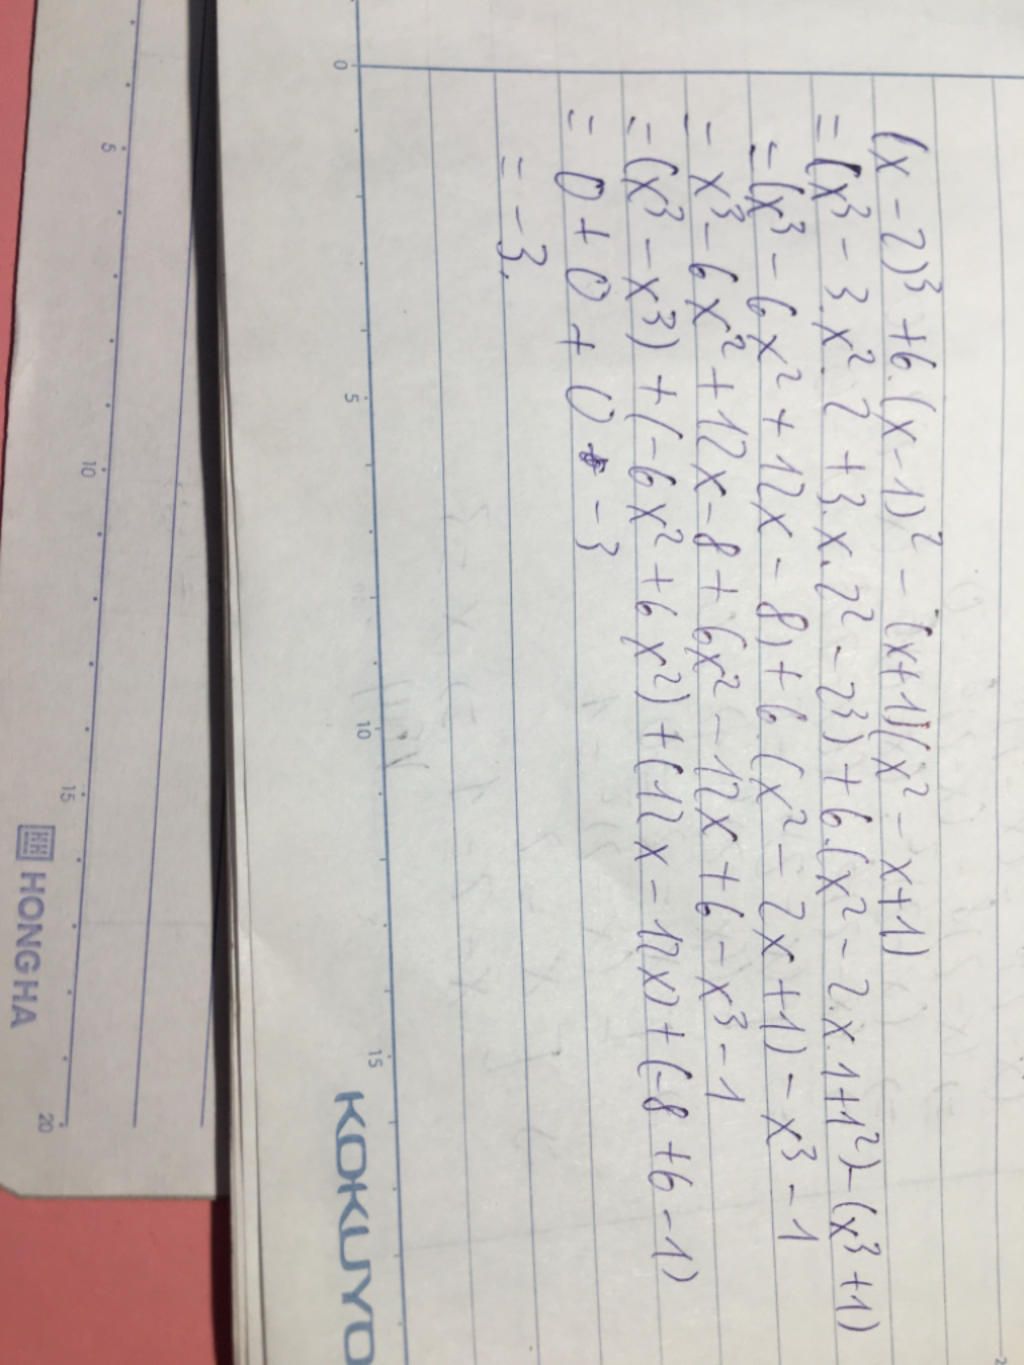 (x - 2)³ + 6.(x - 1)² - (x+1)(x² - x+1)
= (x³ - 3.x².2 + 3.x.2² - 2³) + 6.(x² - 2.x.1+1²) - (x³ +1)
= (x³ - 6x² + 12x - 8) + 6.(x² - 2x +1) - x³ - 1
= x³ - 6x² + 12x - 8 + 6x² - 12x + 6 - x³ - 1
= (x³ - x³) + (-6x² + 6x²) + (12x - 12x) + (-8 +6 -1)
= 0 + 0 + 0 - 3
= -3.
0
5
10
15
KOKUYO
5
10
15
20
HH HONG HA
-2